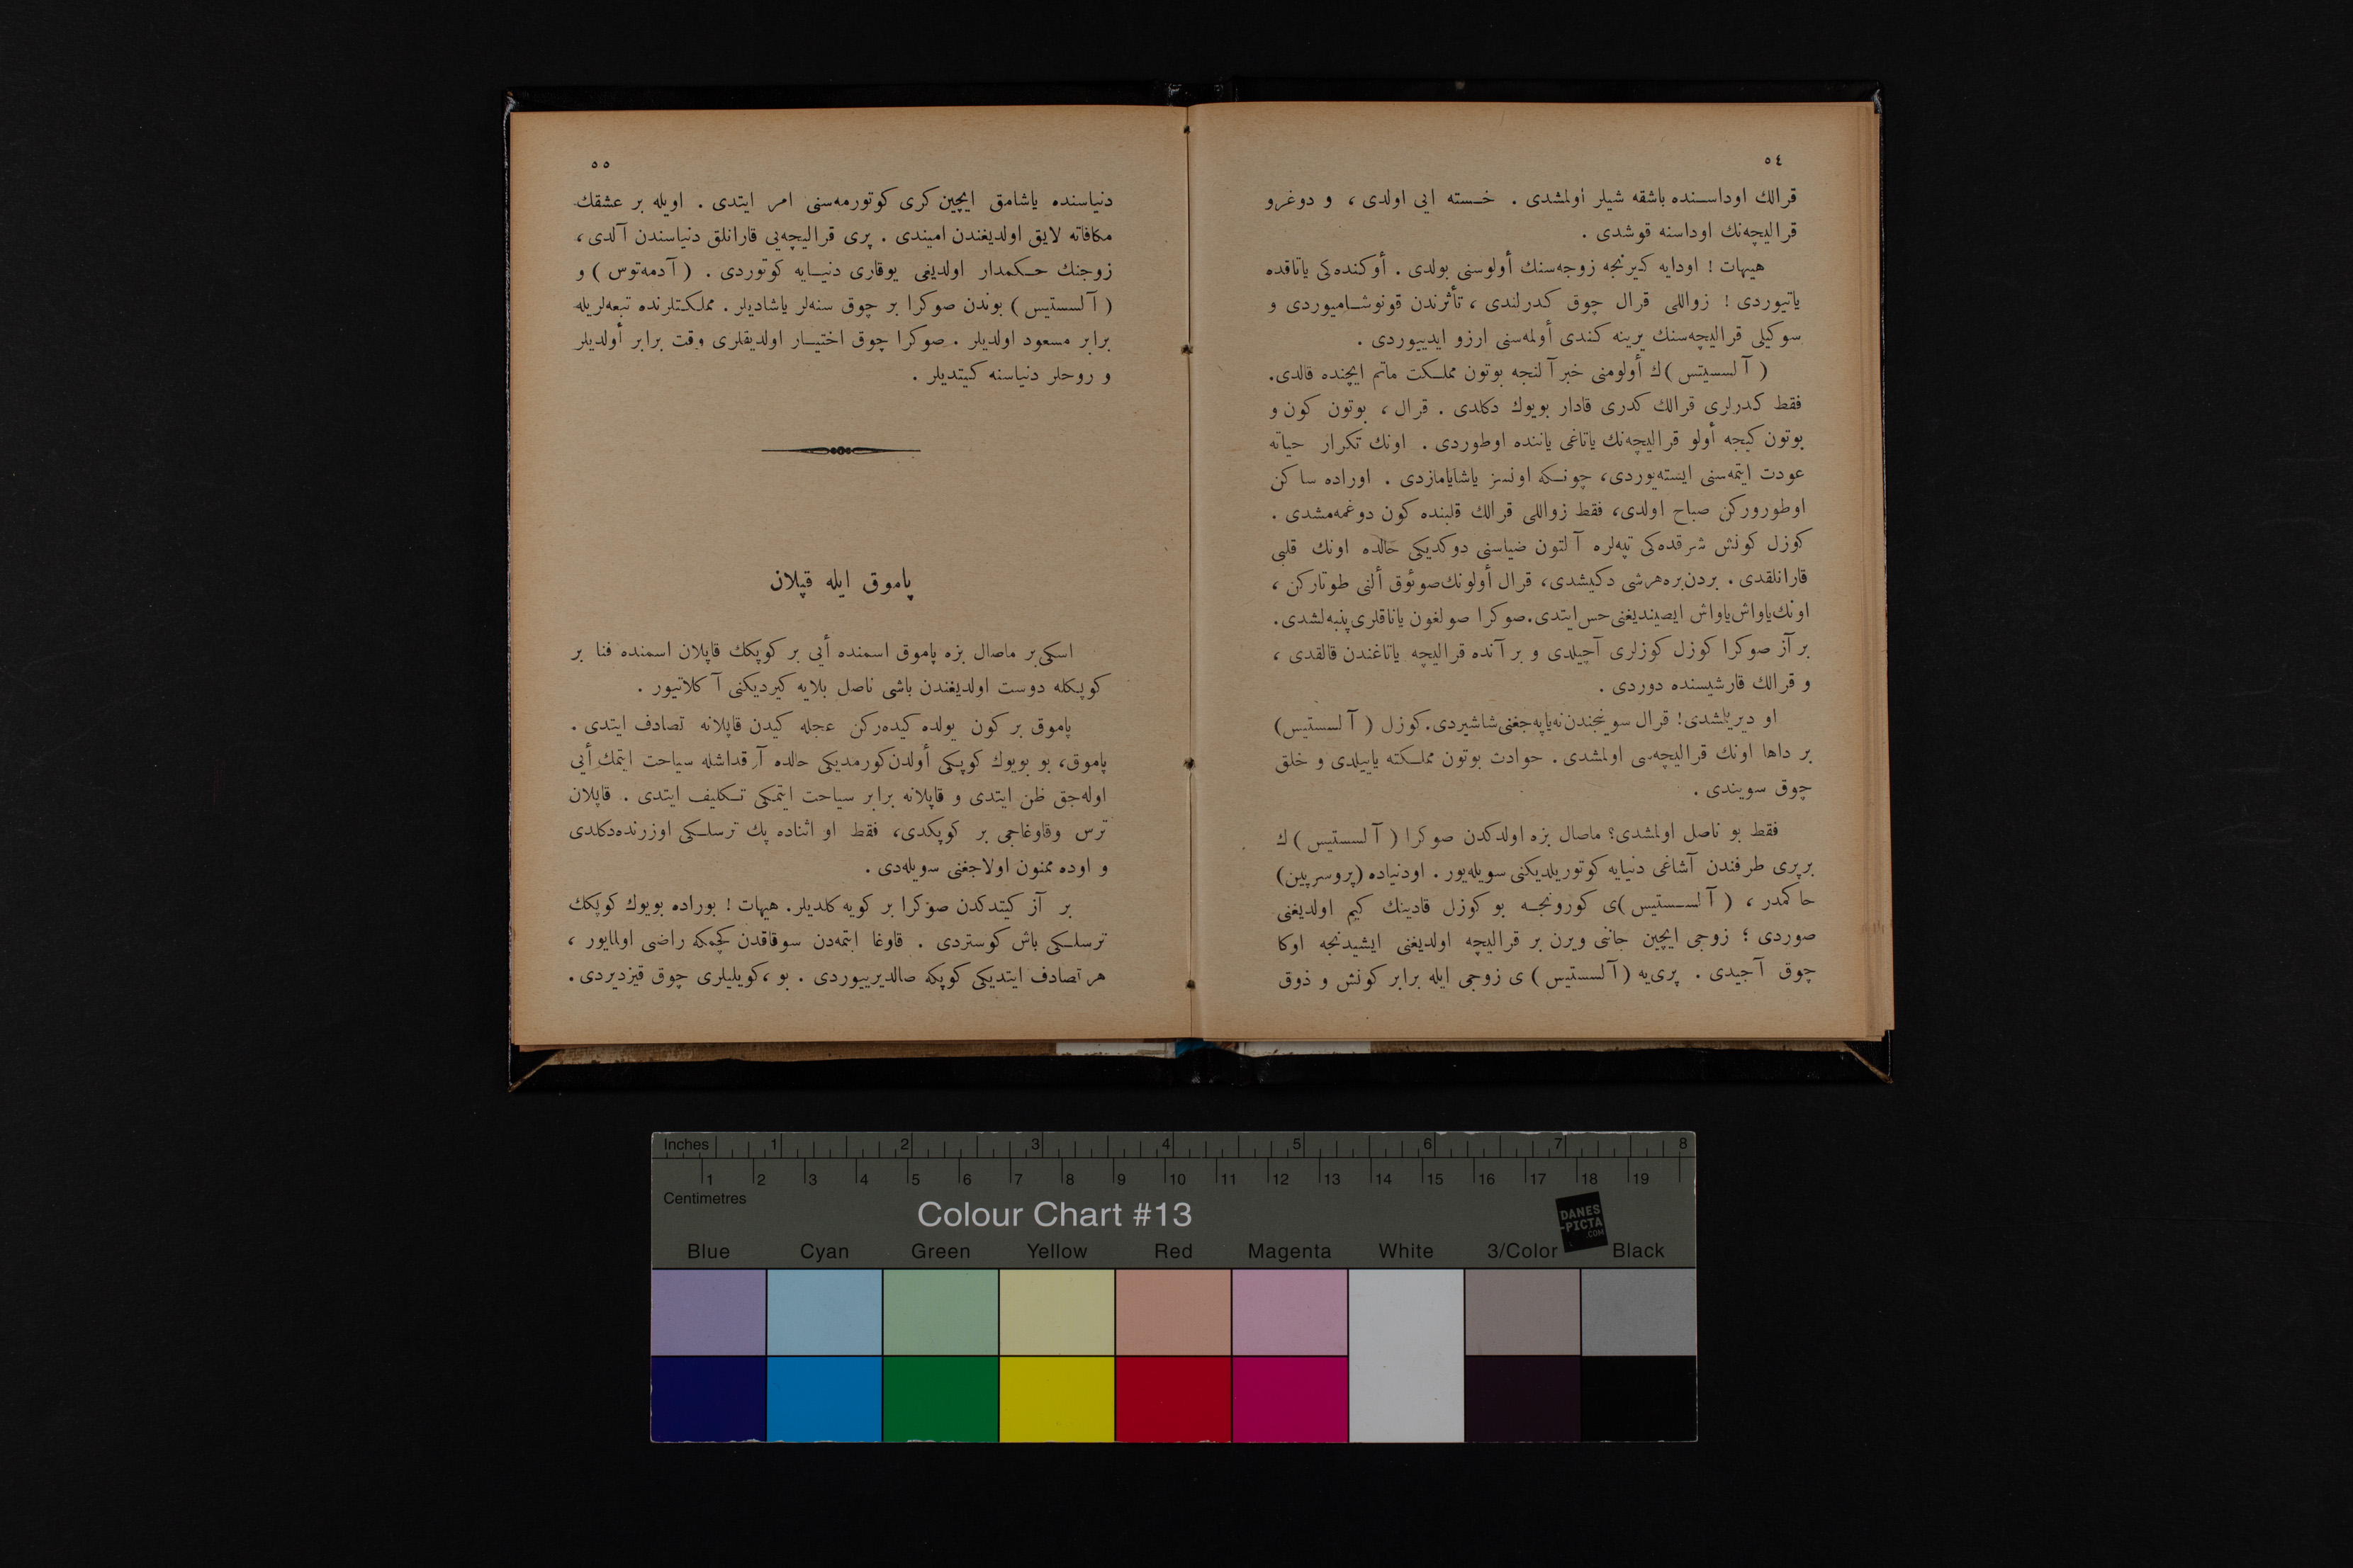 ٥٤
قرالك اوداسنده باشقه شیلر اولمشدی . خسته ایی اولدی ، و دوغرو
قرالیچه‌نك اوداسنه قوشدی .
هیهات ! اودایه کیرنجه زوجه‌سنك أولوسنی بولدی . أوکنده‌کی یاتاقده
یاتیوردی ! زواللی قرال چوق کدرلندی ، تأثرندن قونوشامیوردی و
سوکیلی قرالیچه‌سنك یرینه کندی أولمه‌سنی ارزو ایدییوردی .
( آلسسیتس )ك أولومنی خبر آلنجه بوتون مملکت ماتم ایچنده قالدی.
فقط کدرلری قرالك کدری قادار بویوك دکلدی . قرال ، بوتون کون و
بوتون کیجه أولو قرالیچه‌نك یاتاغی یاننده اوطوردی . اونك تکرار حیاته
عودت ایتمه‌سنی ایسته‌یوردی، چونکه اونسز یاشایامازدی . اوراده ساکن
اوطورورکن صباح اولدی، فقط زواللی قرالك قلبنده کون دوغمه‌مشدی .
کوزل کونش شرقده‌کی تپه‌لره آلتون ضیاسنی دوکدیکی حالده اونك قلبی
قارانلقدی . بردن‌بره‌هرشی دکیشدی، قرال أولونك‌صوئوق ألنی طوتارکن ،
اونك‌یاواش‌یاواش ایصیندیغنی‌حس‌ایتدی.صوکرا صولغون یاناقلری‌پنبه‌لشدی.
بر آز صوکرا کوزل کوزلری آچیلدی و بر آنده قرالیچه یاتاغندن قالقدی ،
و قرالك قارشیسنده دوردی .
او دیریلمشدی! قرال سوینجندن‌نه‌یاپه‌جغنی‌شاشیردی.کوزل ( آلسستیس)
بر داها اونك قرالیچه‌سی اولمشدی . حوادث بوتون مملکته یاییلدی و خلق
چوق سویندی .
فقط بو ناصل اولمشدی؟ ماصال بزه اولدکدن صوکرا ( آلسستیس )ك
برپری طرفندن آشاغی دنیایه کوتوریلدیکنی سویله‌یور . اودنیاده (پروسرپین)
حاکمدر ، ( آلسستیس )ی کورونجه بو کوزل قادینك کیم اولدیغنی
صوردی ؛ زوجی ایچین جاننی ویرن بر قرالیچه اولدیغنی ایشیدنجه اوکا
چوق آجیدی . پری‌یه ( آلسستیس ) ی زوجی ایله برابر کونش و ذوق
٥٥
دنیاسنده یاشامق ایچین کری کوتورمه‌سنی امر ایتدی . اویله بر عشقك
مکافاته لایق اولدیغندن امیندی . پری قرالیچه‌یی قارانلق دنیاسندن آلدی،
زوجنك حکمدار اولدیغی یوقاری دنیایه کوتوردی . ( آدمه‌توس ) و
( آلسستیس ) بوندن صوکرا بر چوق سنه‌لر یاشادیلر . مملکتلرنده تبعه‌لریله
برابر مسعود اولدیلر . صوکرا چوق اختیار اولدیقلری وقت برابر أولدیلر
و روحلر دنیاسنه کیتدیلر .
پاموق ایله قپلان
اسکی بر ماصال بزه پاموق اسمنده أیی بر کوپکك قاپلان اسمنده فنا بر
کوپکله دوست اولدیغندن باشی ناصل بلایه کیردیکنی آکلاتیور .
پاموق بر کون یولده کیده‌رکن عجله کیدن قاپلانه تصادف ایتدی .
پاموق، بو بویوك کوپکی أولدن‌کورمدیکی حالده آرقداشله سیاحت ایتمك أیی
اوله‌جق ظن ایتدی و قاپلانه برابر سیاحت ایتمکی تکلیف ایتدی . قاپلان
ترس وقاوغاجی بر کوپکدی، فقط او اثناده پك ترسلکی اوزرنده‌دکلدی
و اوده ممنون اولاجغنی سویله‌دی .
بر آز کیتدکدن صوکرا بر کویه کلدیلر. هیهات ! بوراده بویوك کوپکك
ترسلکی باش کوستردی . قاوغا ایتمه‌دن سوقاقدن کچمکه راضی اولمایور ،
هر تصادف ایتدیکی کوپکه صالدیرییوردی . بو ،کویلیلری چوق قیزدیردی.
Inches 1 2 3 4 5 6 7 8
1 2 3 4 5 6 7 8 9 10 11 12 13 14 15 16 17 18 19
Centimetres
Colour Chart #13
DANES
-PICTA
.COM
Blue Cyan Green Yellow Red Magenta White 3/Color Black